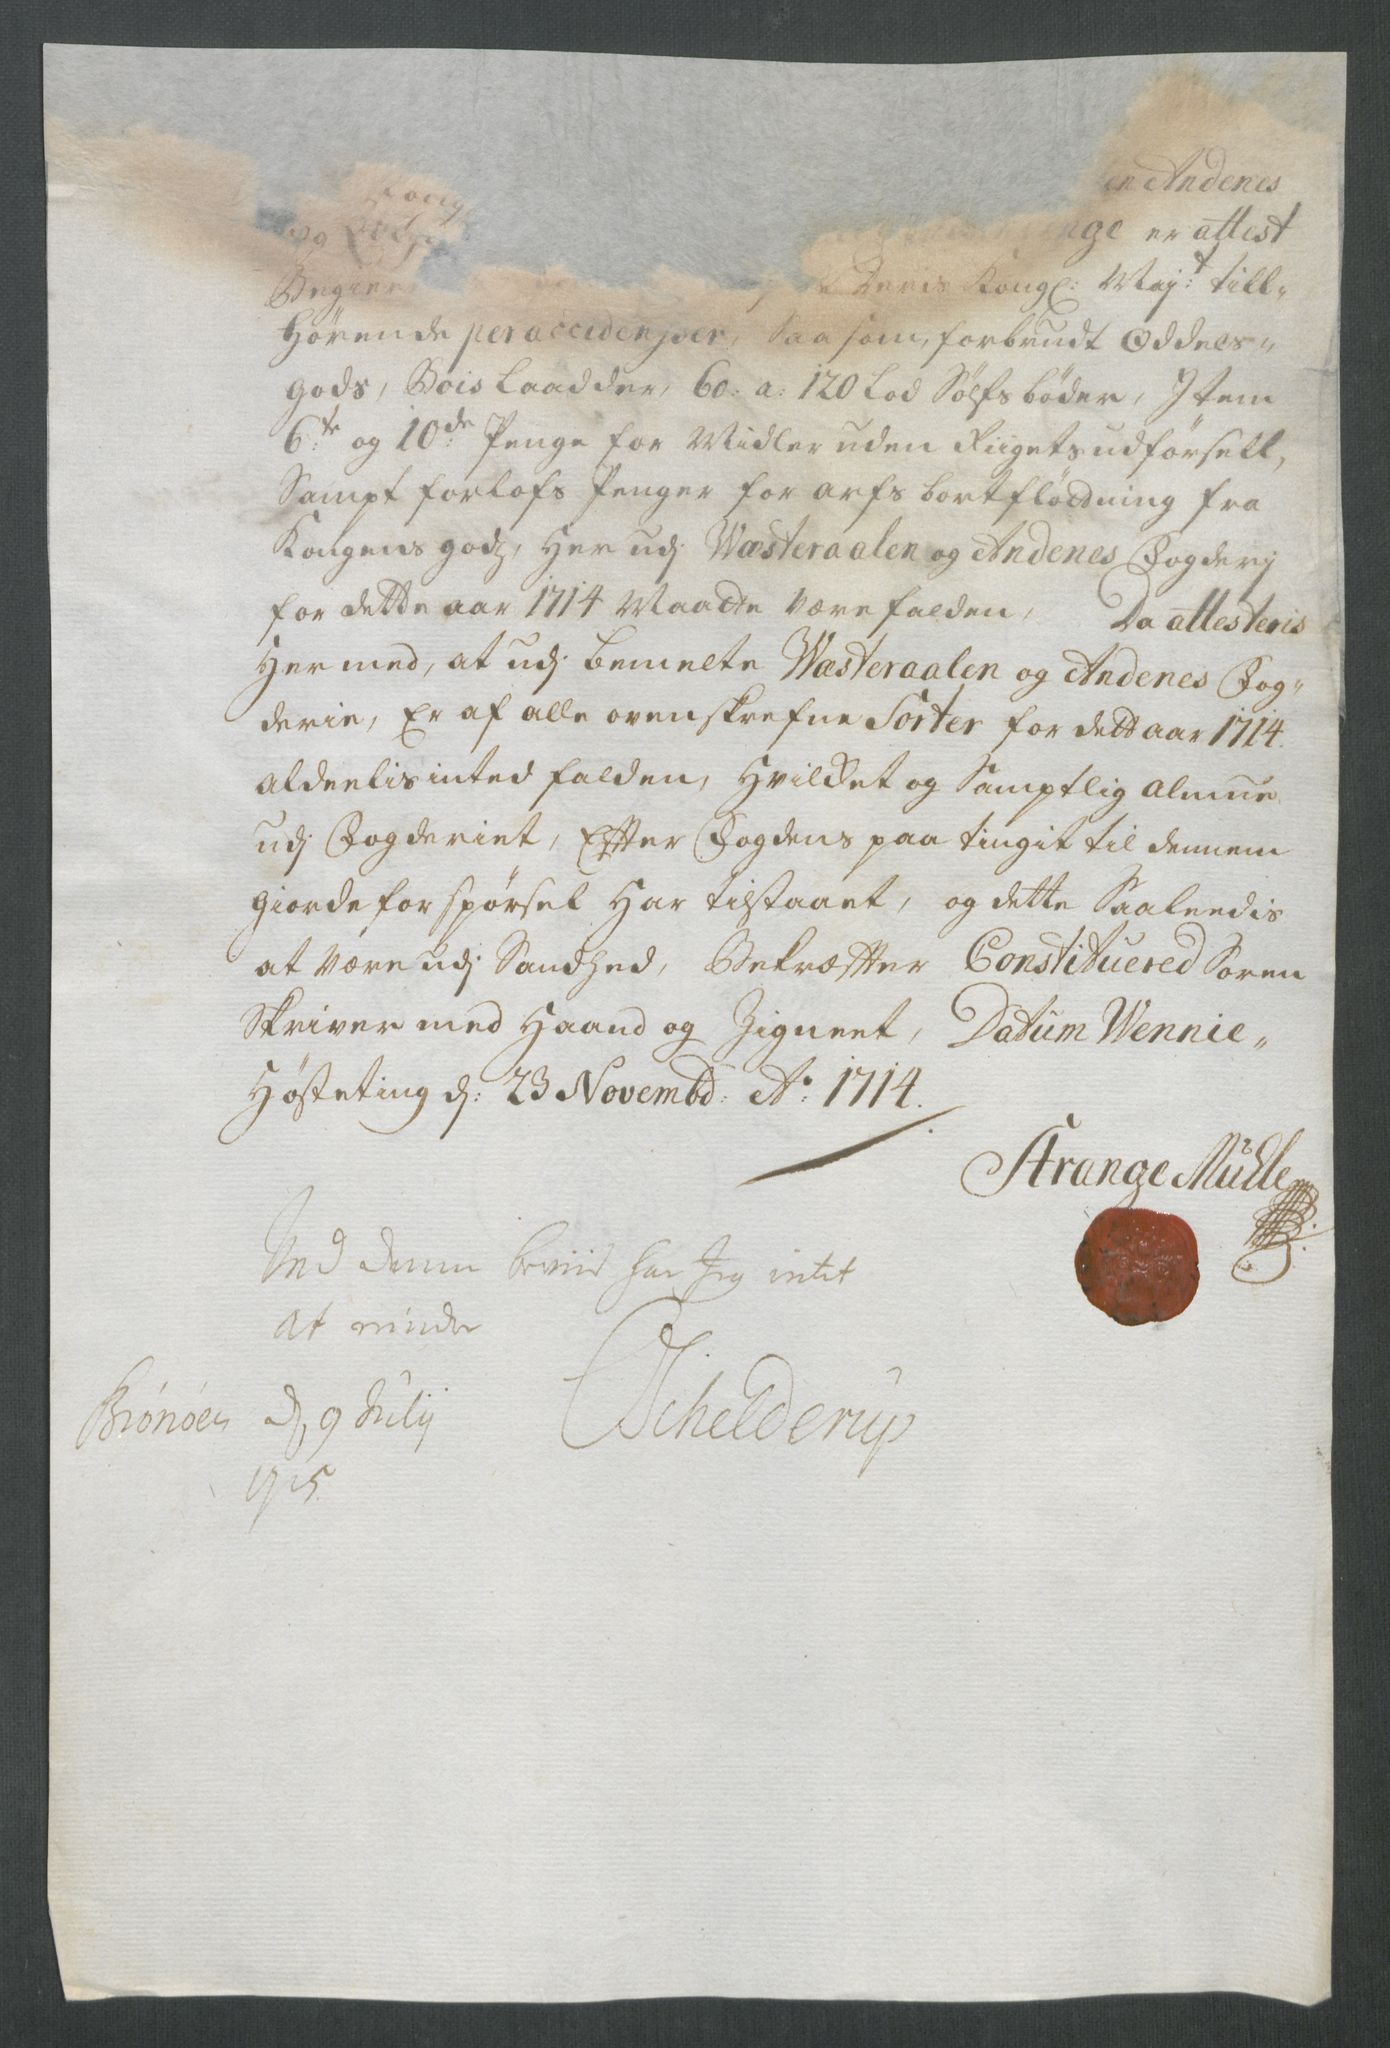 en Andenes
er attest
Begier Deris Kongl: Maj:t till-
hørende peraccidenser, saa som, forbrudt Oddels-
gods, Boislaadder, 60: a: 120 Lod Sølfs bøder, Item
6:te og 10:de Penge for Midler uden Riigets udførsell,
Sampt forlofs Penger for arfs bortflødning fra
Kongens godz, Her udj Wæsteraalen og Andenes Fogderj
for dette aar 1714 Maatte være falden, Da attesteris
Her med, at udj bemelte Wæsteraalen og Andenes Fog-
derie, Er af alle ovenskrefne Sorter for dett aar 1714
aldeelis inted falden, Hvilket og Samptlig almue
udj Fogderiet, Effter Fogdens paa tinget til dennem
giorde forspørsel Har tilstaaet, og dette Saaleedis
at være udj Sandhed, Bekræffter Constituered Soren
Skriver med Haand og Zigneet, Datum Wennie-
Høsteting d: 23 Novembd: Ao: 1714.
Strange Müller
Ved denne beviis har Jeg intet
at minde
Brónóen d, 9 Julij
1715.
Schelderup